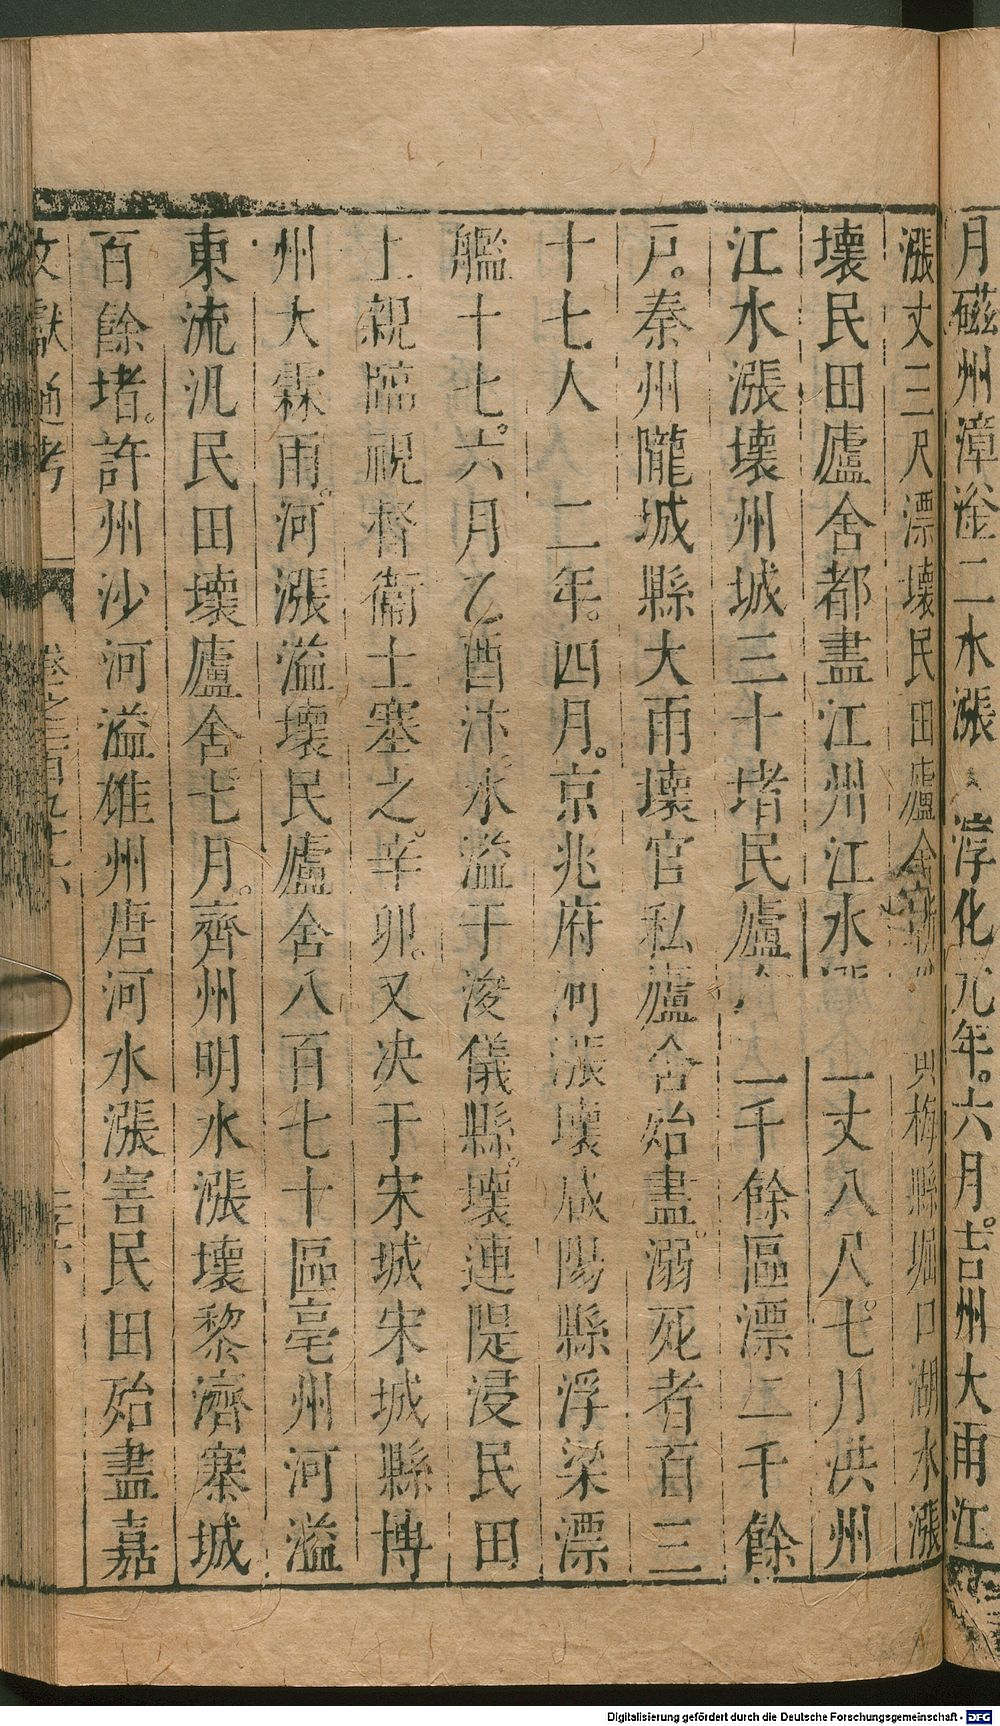 月磁州漳滏二水漲 淳化元年。六月。吉州大雨江
漲丈三尺漂壞民田廬舍 梅縣堀口湖水漲
壞民田廬舍都盡江州江水 一丈八尺。七月洪州
江水漲壞州城三十堵民廬 一千餘區漂二千餘
戸。秦州隴城縣大雨壞官私廬舍殆盡。溺死者百三
十七人 二年。四月。京兆府河漲壞咸陽縣浮梁漂
艦十七。六月乙酉汴。水溢于浚儀縣。壞連隄浸民田
上親臨視督衛士塞之。辛卯。又决于宋城宋城縣博
州大霖雨。河漲溢壞民廬舍八百七十區亳州河溢
東流汎民田壞廬舍。七月。齊州明水漲壞黎濟寨城
百餘堵。許州沙河溢雄州唐河水漲害民田殆盡嘉
文獻通考 卷之二百九十六
Digitalisierung gefördert durch die Deutsche Forschungsgemeinschaft - DFG